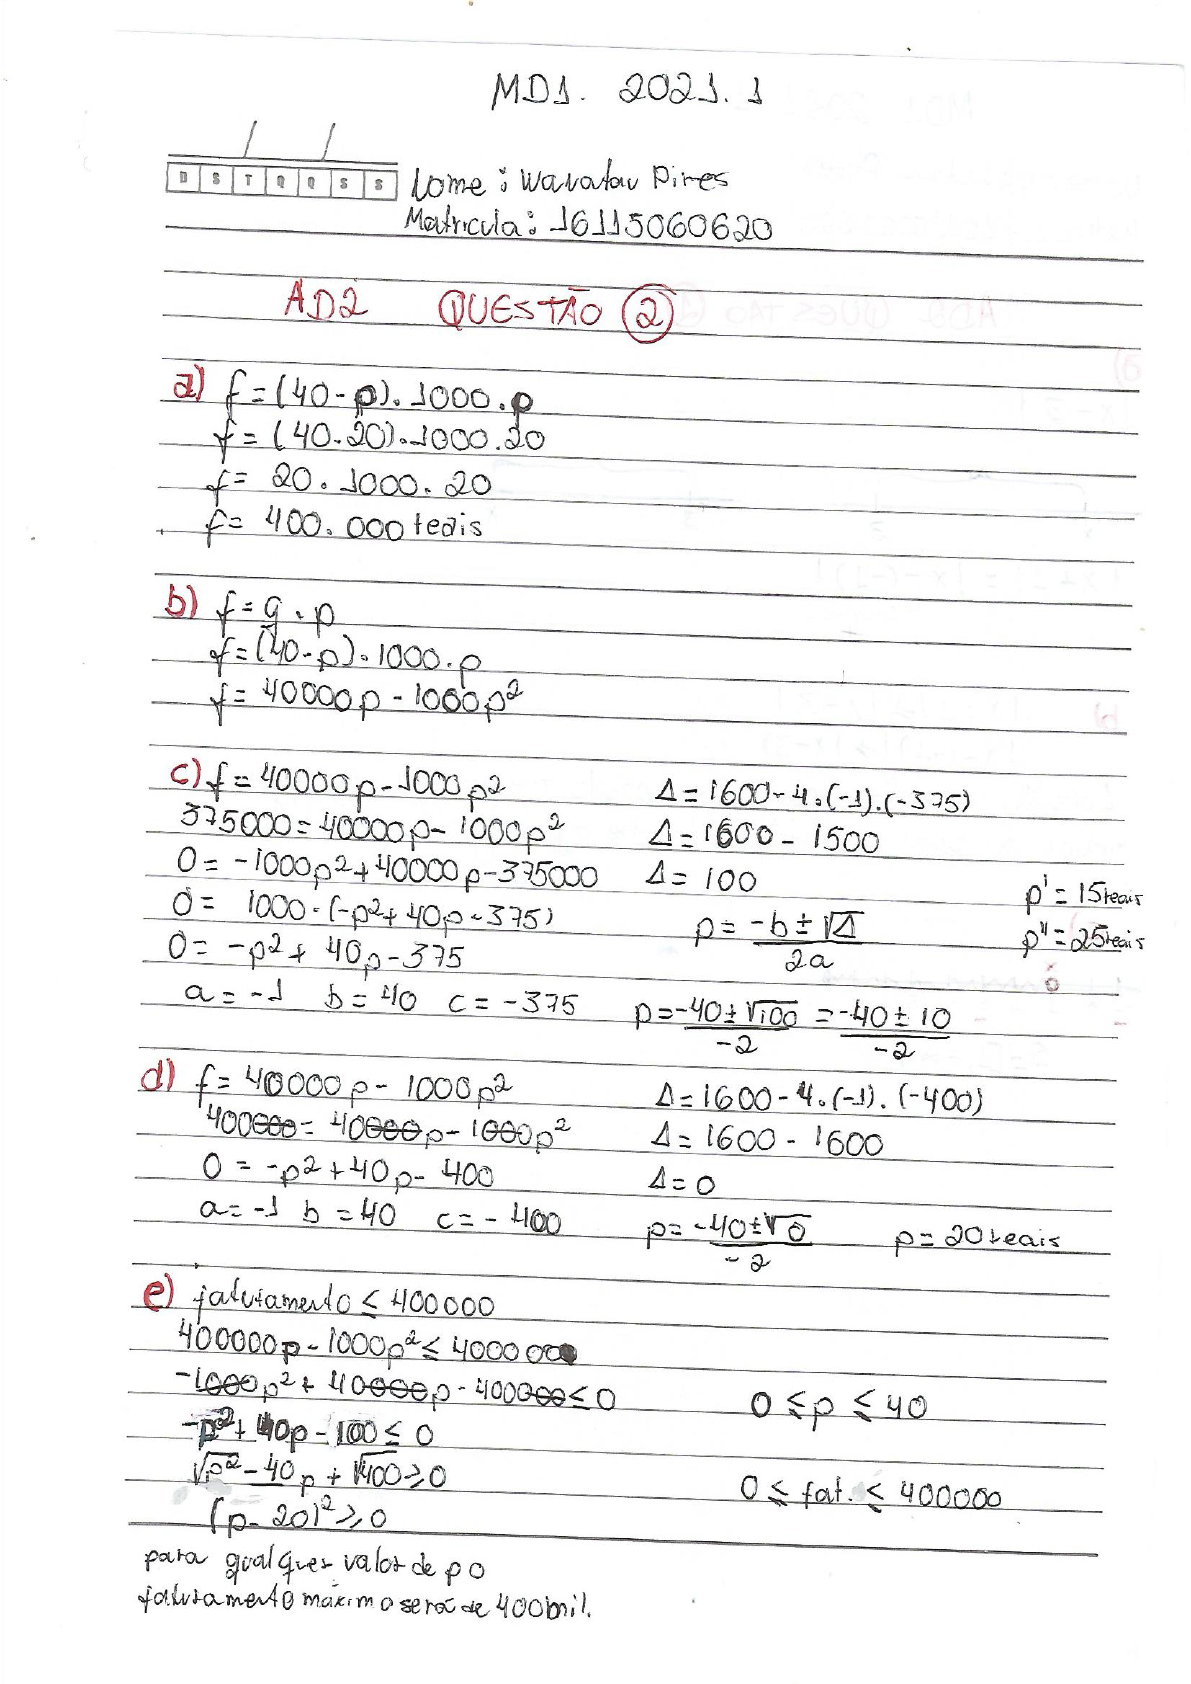 MD1. 2021.1
D S T Q Q S S
Nome: Wavatav Pires
Matrícula: 16115060620
AD2 QUESTÃO 2
a) f=(40-p).1000.p
f=(40-20).1000.20
f= 20.1000.20
f= 400.000 reais
b) f=q.p
f=(40-p).1000.p
f= 40000p - 1000p²
c) f= 40000p - 1000p²
375000=40000p- 1000p²
0= -1000p²+40000p-375000
0= 1000.(-p²+40p-375)
0= -p²+ 40p-375
a= -1 b= 40 c= -375
Δ=1600-4.(-1).(-375)
Δ=1600 - 1500
Δ= 100
p= -b±√Δ / 2a
p=-40±√100 / -2 = -40±10 / -2
p'= 15reais
p"=25reais
d) f= 40000p - 1000p²
400000= 40000p- 1000p²
0= -p²+40p- 400
a=-1 b=40 c=-400
Δ=1600-4.(-1).(-400)
Δ=1600 - 1600
Δ=0
p= -40±√0 / -2
p= 20reais
e) faturamento ≤ 400000
400000p-1000p²≤400000
-1000p²+40000p-400000≤0
-p²+40p-100≤0
√p²-40p+√400≥0
(p-20)²≥0
0≤p≤40
0≤fat.≤400000
para qualquer valor de p o
faturamento máximo será de 400mil.